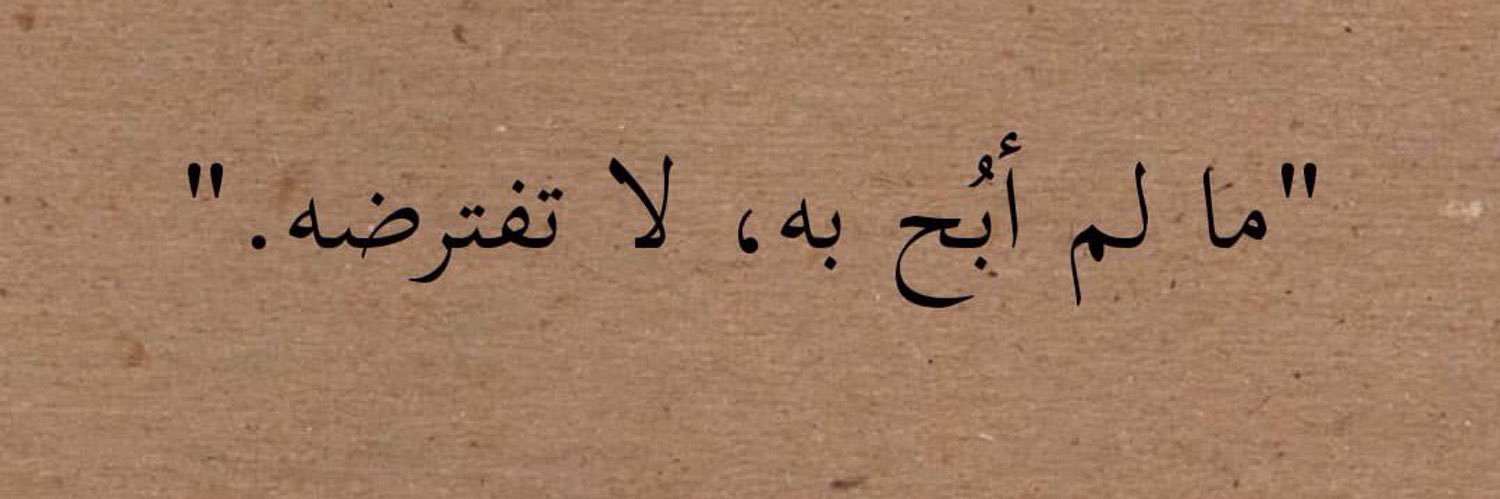 "ما لم أبُح به، لا تفترضه."